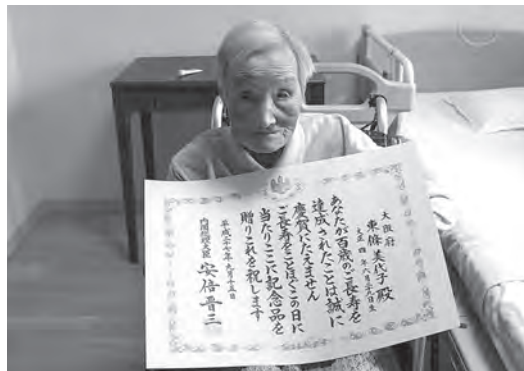 大阪府
東條美代子殿
大正四年八月二十九日生
あなたが百歳のご長寿を
達成されたことは誠に
慶賀にたえません
ご長寿をことほぐこの日に
当たりここに記念品を
贈りこれを祝します
平成二十七年九月十五日
内閣総理大臣 安倍晋三